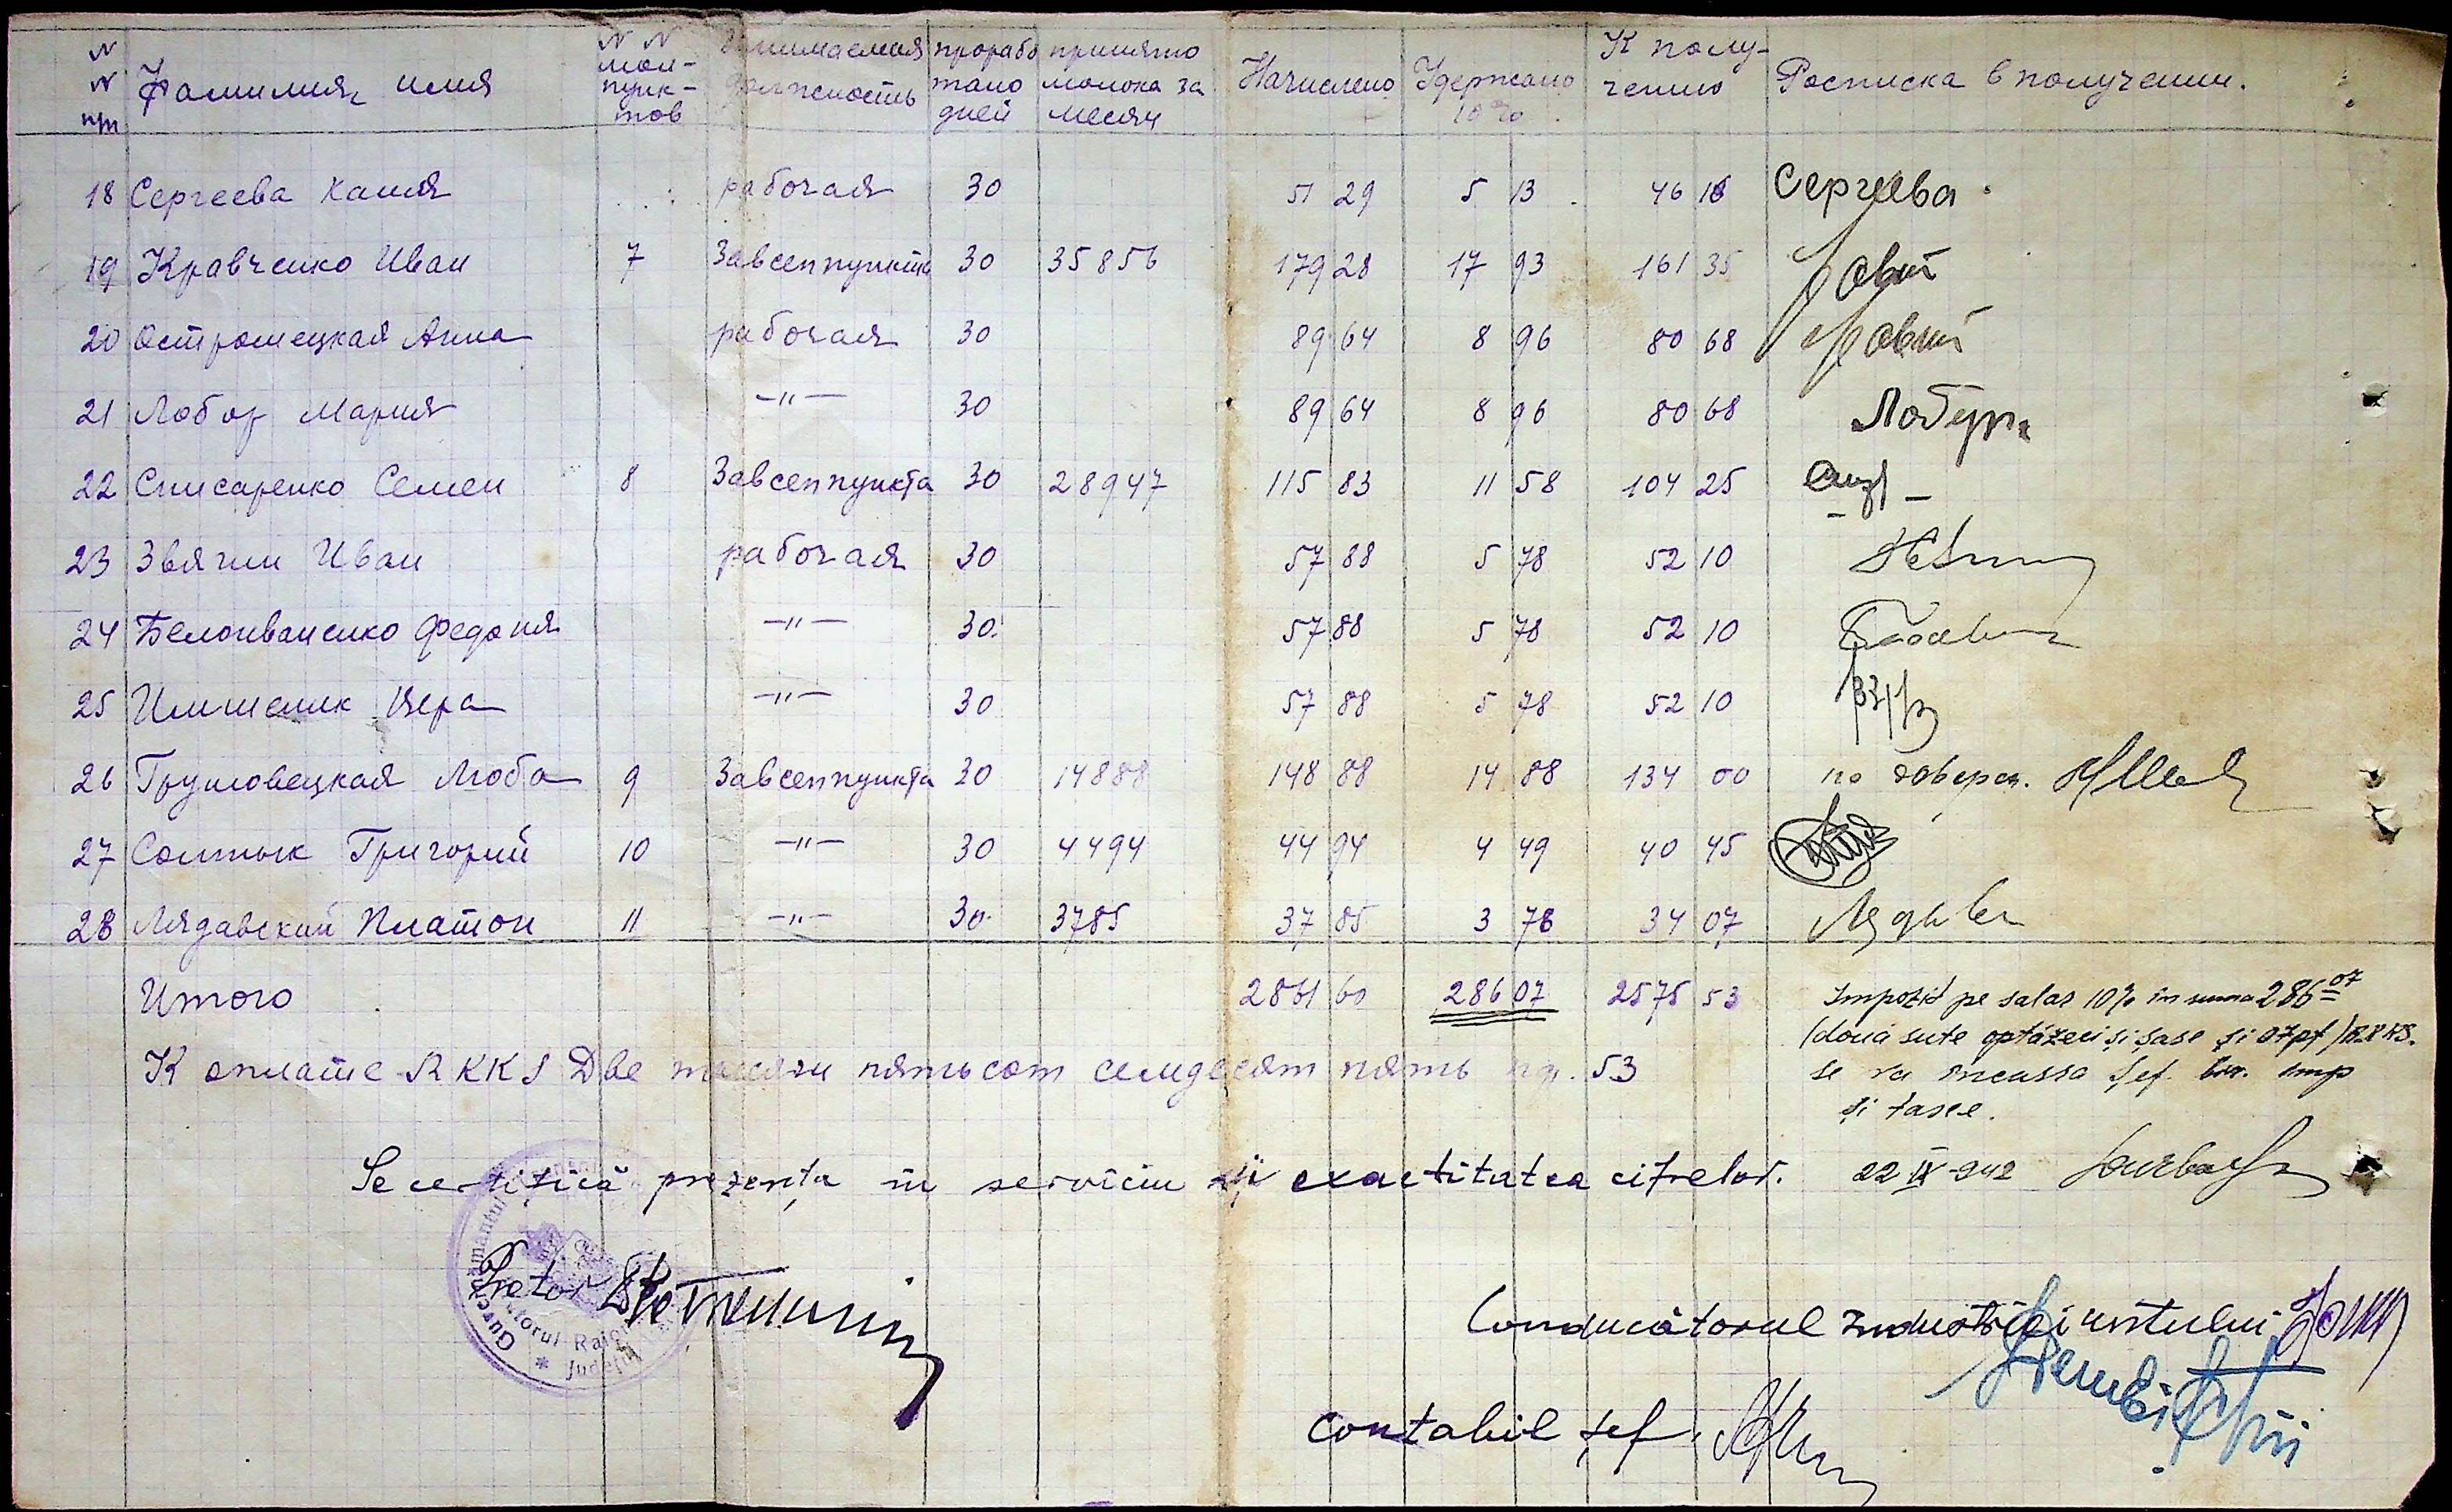 N N п/п Фамилия, имя N N мол-пунк-тов Занимаемая должность прорабо тано дней принято молока за месяц Начислено Удержано 10% К полу-чению Росписка в получении.
18 Сергеева Ксения рабочая 30 51 29 5 13 46 16 Сергеева
19 Кравченко Иван 7 Завсеппункта 30 35856 179 28 17 93 161 35
20 Остромецкая Анна рабочая 30 89 64 8 96 80 68
21 Лобор Мария -"- 30 89 64 8 96 80 68
22 Списаренко Семен 8 Завсеппункта 30 28947 115 83 11 58 104 25
23 Звягин Иван рабочая 30 57 88 5 78 52 10
24 Белоиваненко Федония -"- 30 57 88 5 78 52 10
25 Вера -"- 30 57 88 5 78 52 10
26 Люба 9 Завсеппункта 30 14888 148 88 14 88 134 00 по доверен.
27 Солтык Григорий 10 -"- 30 4494 44 94 4 49 40 45
28 Лядавский Платон 11 -"- 30 3785 37 85 3 78 34 07
Итого 2861 60 286 07 2575 53 Impozit pe salar 10% în suma 286 07
(două sute optăzeci și șase și 07 pf) RKKS.
К оплате RKKS Две тысячи пятьсот семдесят пять 53
se va incassa Șef. bir. imp
și taxe.
Se certifică prezența în serviciu și exactitatea cifrelor. 22 IX 942
Pretor
Conducătorul Industriei untului
Contabil șef